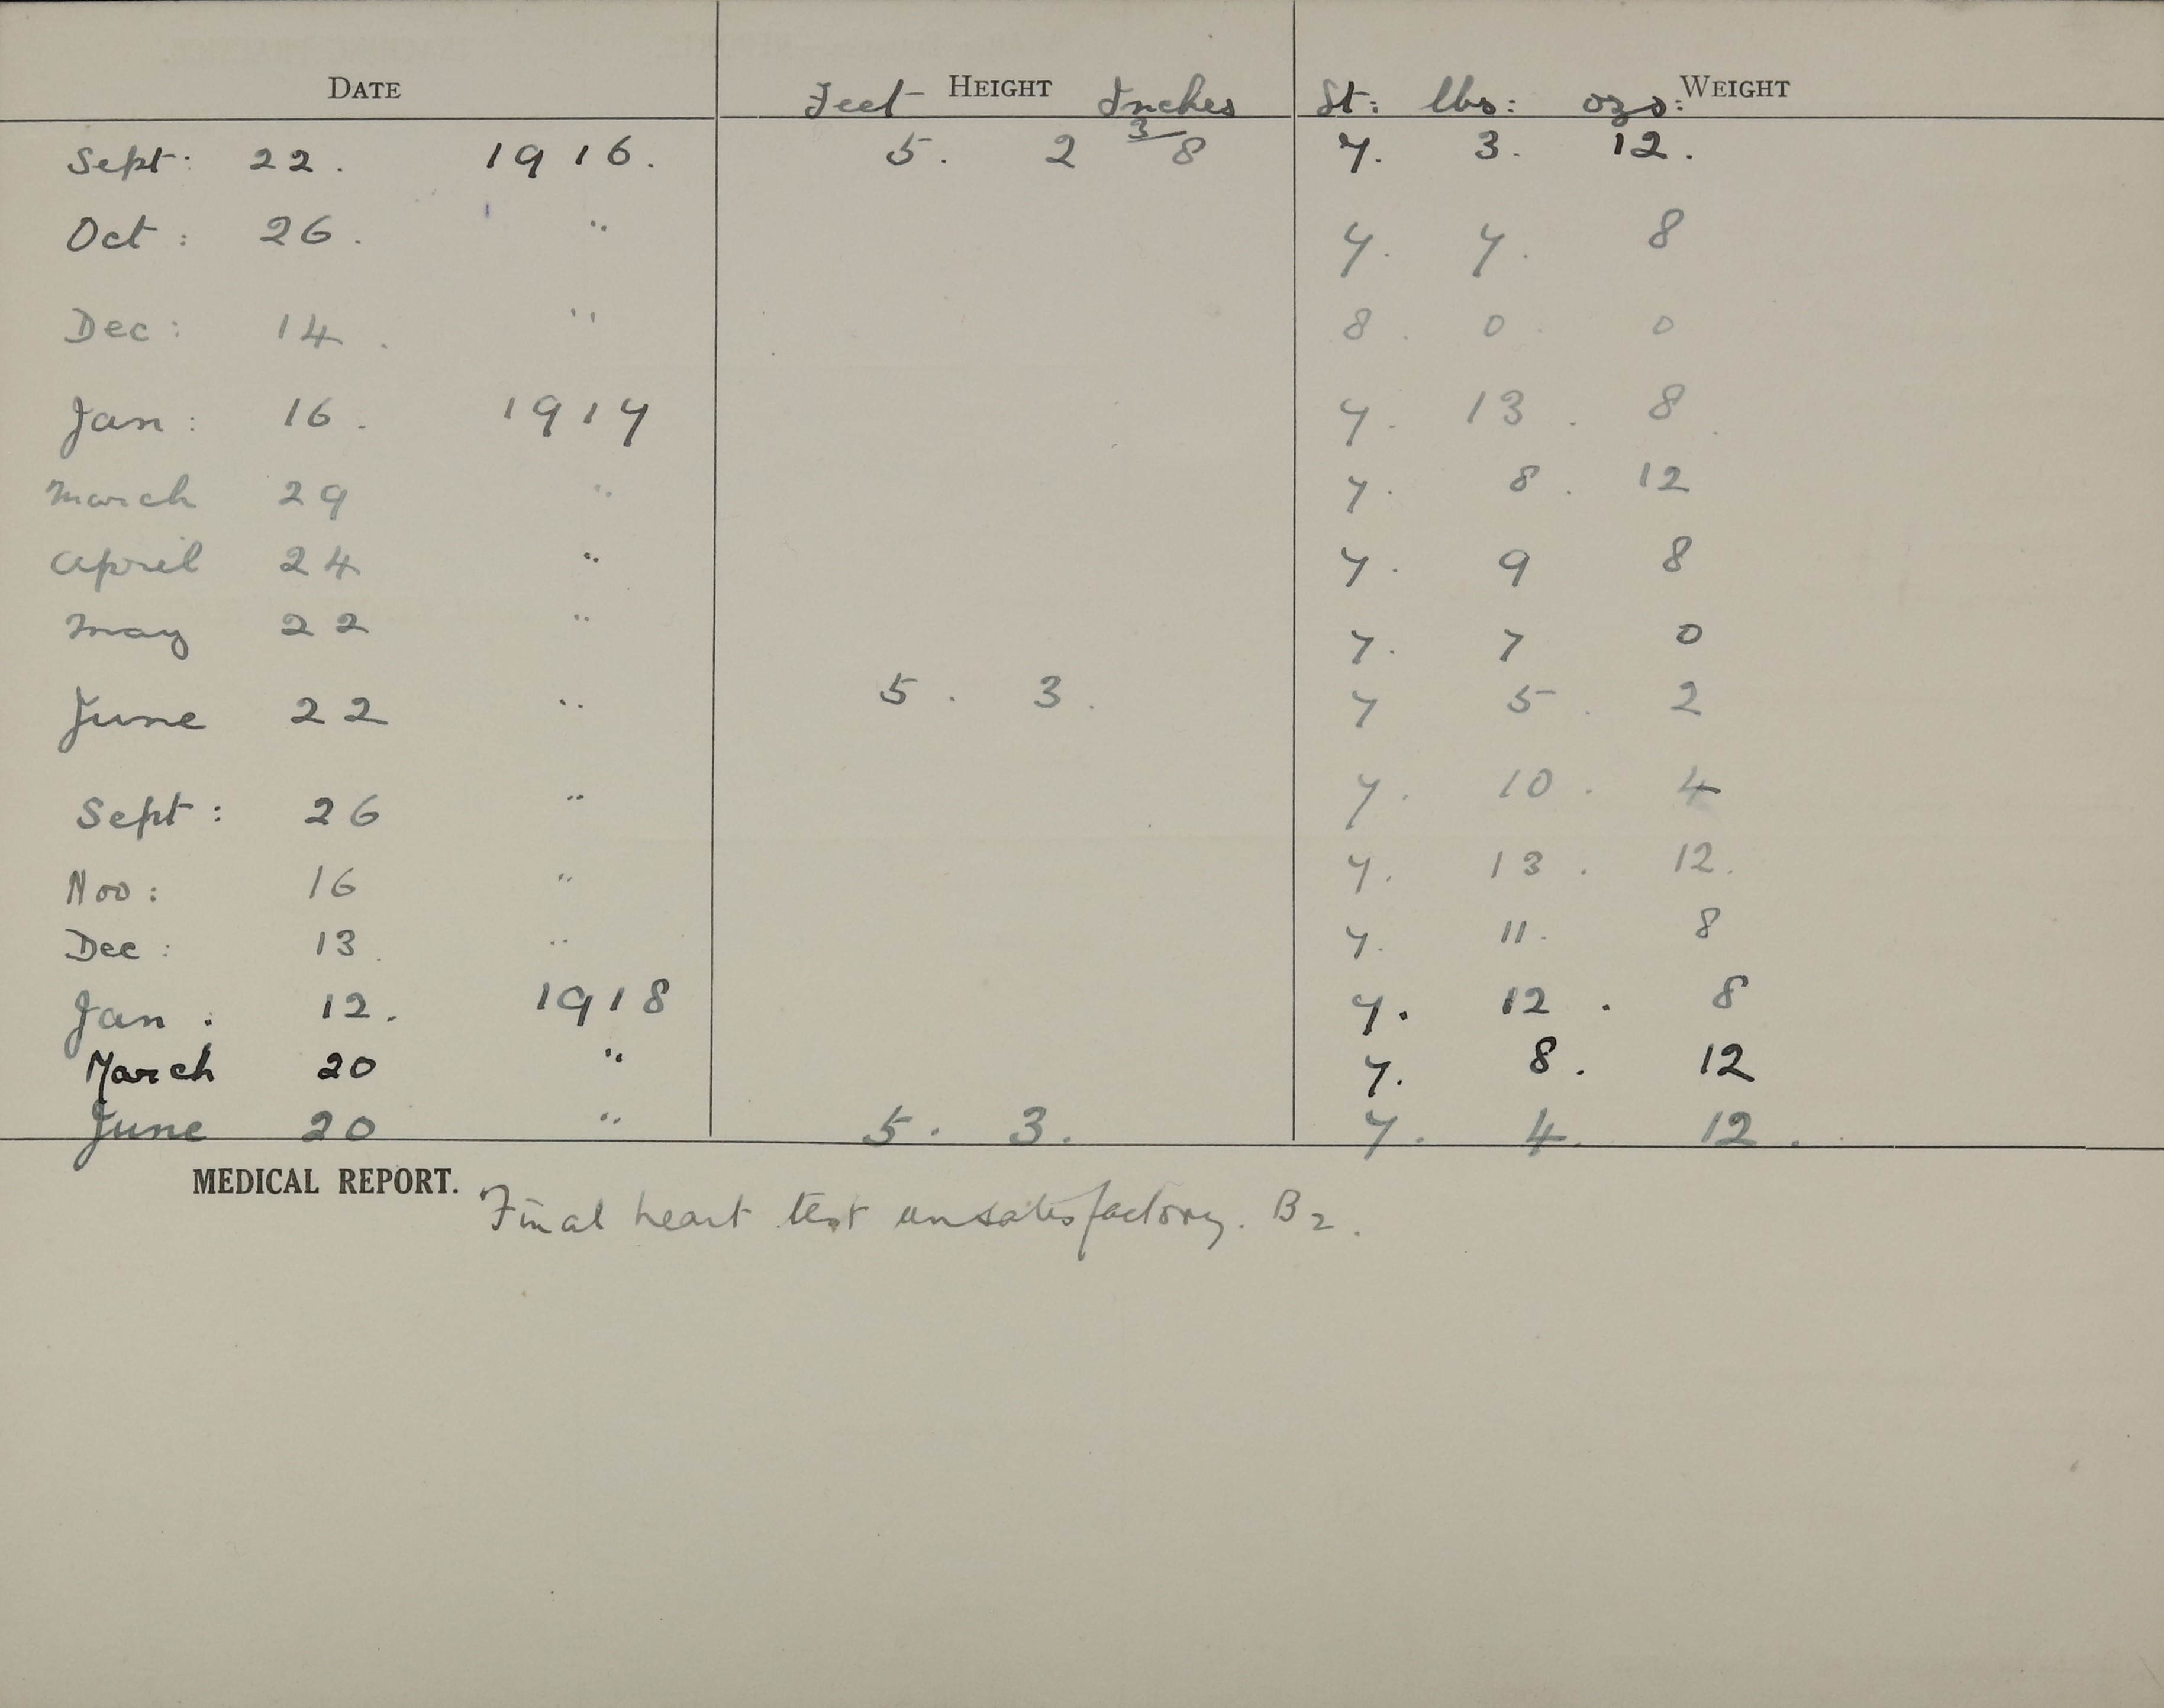 DATE Feet HEIGHT Inches St: lbs: ozs: WEIGHT
Sept: 22. 1916. 5. 2 3/8 7. 3. 12.
Oct: 26. " 7. 7. 8
Dec: 14. " 8. 0. 0
Jan: 16. 1917 7. 13. 8.
March 29 " 7. 8. 12
April 24 " 7. 9 8
May 22 " 7. 7 0
June 22 " 5. 3. 7 5. 2
Sept: 26 " 7. 10. 4
Nov: 16 " 7. 13. 12.
Dec: 13. " 7. 11. 8
Jan: 12. 1918 7. 12. 8
March 20 " 7. 8. 12
June 20 " 5. 3. 7. 4. 12.
MEDICAL REPORT. Final heart test unsatisfactory. B2.